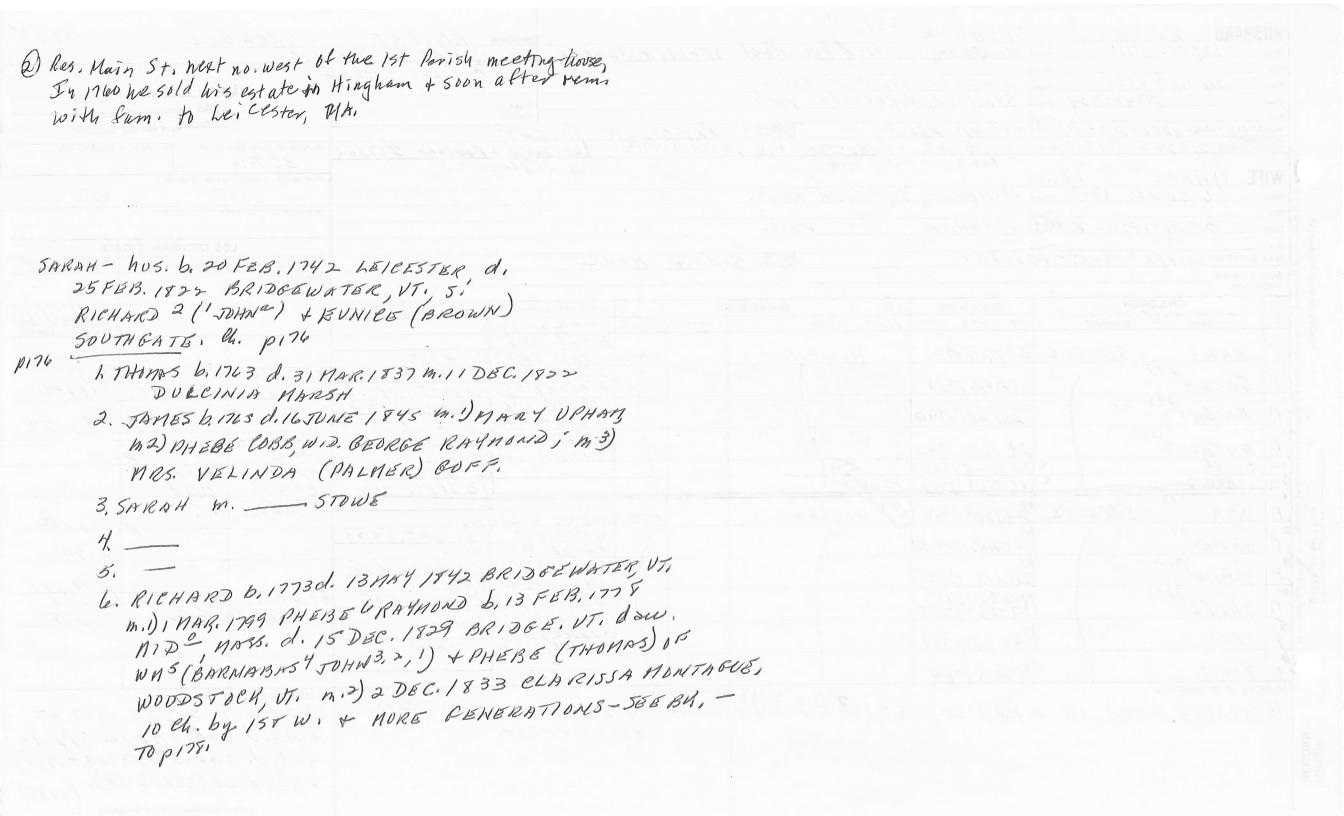 ② Res. Main St. next no. west of the 1st Parish meeting-house,
In 1760 he sold his estate in Hingham + soon after rem.
with fam. to Leicester, MA.
SARAH - hus. b. 20 FEB. 1742 LEICESTER, d.
25 FEB. 1822 BRIDGEWATER, VT. s.
RICHARD 2 (1 JOHN) + EUNICE (BROWN)
SOUTHGATE. Ch. p176
p176
1. THOMAS b. 1763 d. 31 MAR. 1837 m. 11 DEC. 1822
DULCINIA MARSH
2. JAMES b. 1765 d. 16 JUNE 1845 m. 1) MARY UPHAM
m2) PHEBE COBB, WID. GEORGE RAYMOND; m 3)
MRS. VELINDA (PALMER) GOFF.
3. SARAH m. ——— STOWE
4. ———
5. ——
6. RICHARD b. 1773 d. 13 MAY 1842 BRIDGEWATER, VT.
m. 1) 1 MAR. 1799 PHEBE 6 RAYMOND b. 13 FEB. 1778
MID°, MASS. d. 15 DEC. 1829 BRIDGE. VT. dau.
WM 5 (BARNABAS 4 JOHN 3, 2, 1) + PHEBE (THOMAS) OF
WOODSTOCK, VT. m. 2) 2 DEC. 1833 CLARISSA MONTAGUE,
10 Ch. by 1ST W. + MORE GENERATIONS - SEE BK. —
TO p178.